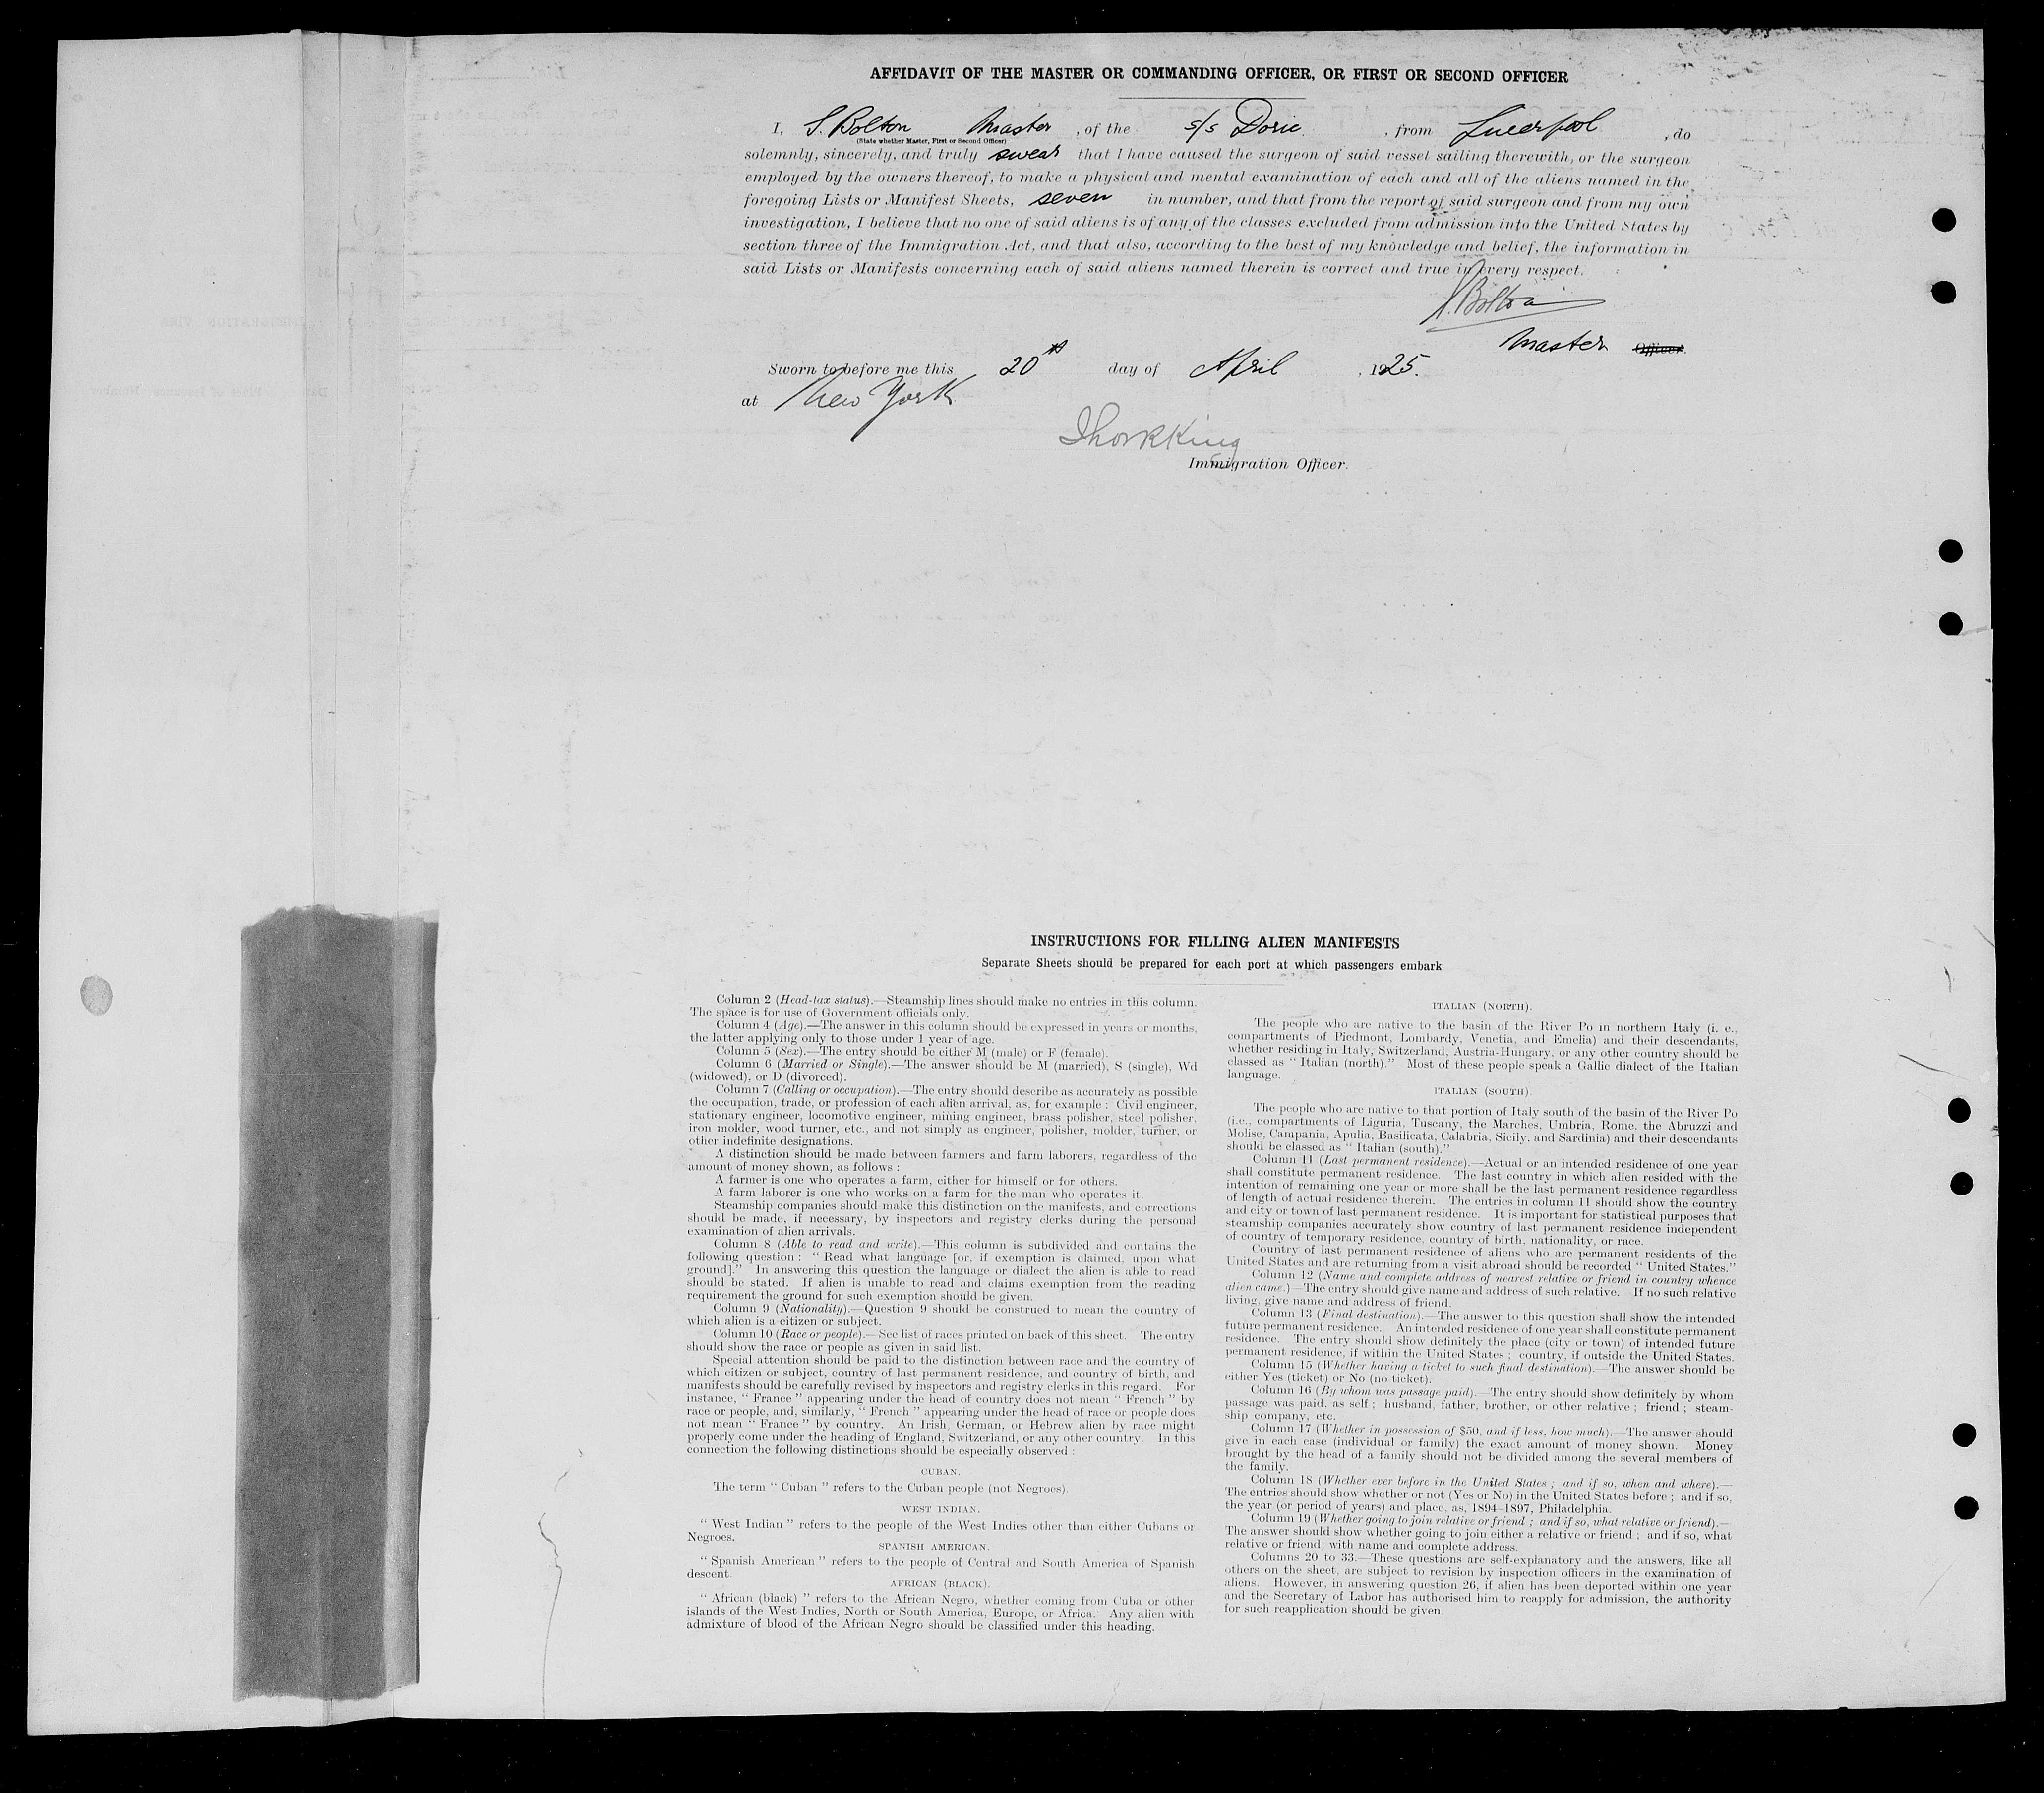 AFFIDAVIT OF THE MASTER OR COMMANDING OFFICER, OR FIRST OR SECOND OFFICER
I, S. Bolton Master , of the s/s Doric. , from Liverpool , do
(State whether Master, First or Second Officer)
solemnly, sincerely, and truly swear that I have caused the surgeon of said vessel sailing therewith, or the surgeon
employed by the owners thereof, to make a physical and mental examination of each and all of the aliens named in the
foregoing Lists or Manifest Sheets, seven in number, and that from the report of said surgeon and from my own
investigation, I believe that no one of said aliens is of any of the classes excluded from admission into the United States by
section three of the Immigration Act, and that also, according to the best of my knowledge and belief, the information in
said Lists or Manifests concerning each of said aliens named therein is correct and true in every respect.
S. Bolton
Master Officer.
Sworn to before me this 20th day of April , 1925.
at New York
King
Immigration Officer.
INSTRUCTIONS FOR FILLING ALIEN MANIFESTS
Separate Sheets should be prepared for each port at which passengers embark
Column 2 (Head-tax status).—Steamship lines should make no entries in this column.
The space is for use of Government officials only.
Column 4 (Age).—The answer in this column should be expressed in years or months,
the latter applying only to those under 1 year of age.
Column 5 (Sex).—The entry should be either M (male) or F (female).
Column 6 (Married or Single).—The answer should be M (married), S (single), Wd
(widowed), or D (divorced).
Column 7 (Calling or occupation).—The entry should describe as accurately as possible
the occupation, trade, or profession of each alien arrival, as, for example : Civil engineer,
stationary engineer, locomotive engineer, mining engineer, brass polisher, steel polisher,
iron molder, wood turner, etc., and not simply as engineer, polisher, molder, turner, or
other indefinite designations.
A distinction should be made between farmers and farm laborers, regardless of the
amount of money shown, as follows :
A farmer is one who operates a farm, either for himself or for others.
A farm laborer is one who works on a farm for the man who operates it.
Steamship companies should make this distinction on the manifests, and corrections
should be made, if necessary, by inspectors and registry clerks during the personal
examination of alien arrivals.
Column 8 (Able to read and write).—This column is subdivided and contains the
following question : “ Read what language [or, if exemption is claimed, upon what
ground].” In answering this question the language or dialect the alien is able to read
should be stated. If alien is unable to read and claims exemption from the reading
requirement the ground for such exemption should be given.
Column 9 (Nationality).—Question 9 should be construed to mean the country of
which alien is a citizen or subject.
Column 10 (Race or people).—See list of races printed on back of this sheet. The entry
should show the race or people as given in said list.
Special attention should be paid to the distinction between race and the country of
which citizen or subject, country of last permanent residence, and country of birth, and
manifests should be carefully revised by inspectors and registry clerks in this regard. For
instance, “ France ” appearing under the head of country does not mean “ French ” by
race or people, and, similarly, “ French ” appearing under the head of race or people does
not mean “ France ” by country. An Irish, German, or Hebrew alien by race might
properly come under the heading of England, Switzerland, or any other country. In this
connection the following distinctions should be especially observed :
CUBAN.
The term “ Cuban ” refers to the Cuban people (not Negroes).
WEST INDIAN.
“ West Indian ” refers to the people of the West Indies other than either Cubans or
Negroes.
SPANISH AMERICAN.
“ Spanish American ” refers to the people of Central and South America of Spanish
descent.
AFRICAN (BLACK).
“ African (black) ” refers to the African Negro, whether coming from Cuba or other
islands of the West Indies, North or South America, Europe, or Africa. Any alien with
admixture of blood of the African Negro should be classified under this heading.
ITALIAN (NORTH).
The people who are native to the basin of the River Po in northern Italy (i. e.,
compartments of Piedmont, Lombardy, Venetia, and Emelia) and their descendants,
whether residing in Italy, Switzerland, Austria-Hungary, or any other country should be
classed as “ Italian (north).” Most of these people speak a Gallic dialect of the Italian
language.
ITALIAN (SOUTH).
The people who are native to that portion of Italy south of the basin of the River Po
(i.e., compartments of Liguria, Tuscany, the Marches, Umbria, Rome, the Abruzzi and
Molise, Campania, Apulia, Basilicata, Calabria, Sicily, and Sardinia) and their descendants
should be classed as “ Italian (south).”
Column 11 (Last permanent residence).—Actual or an intended residence of one year
shall constitute permanent residence. The last country in which alien resided with the
intention of remaining one year or more shall be the last permanent residence regardless
of length of actual residence therein. The entries in column 11 should show the country
and city or town of last permanent residence. It is important for statistical purposes that
steamship companies accurately show country of last permanent residence independent
of country of temporary residence, country of birth, nationality, or race.
Country of last permanent residence of aliens who are permanent residents of the
United States and are returning from a visit abroad should be recorded “ United States.”
Column 12 (Name and complete address of nearest relative or friend in country whence
alien came.)—The entry should give name and address of such relative. If no such relative
living, give name and address of friend.
Column 13 (Final destination).—The answer to this question shall show the intended
future permanent residence. An intended residence of one year shall constitute permanent
residence. The entry should show definitely the place (city or town) of intended future
permanent residence, if within the United States ; country, if outside the United States.
Column 15 (Whether having a ticket to such final destination).—The answer should be
either Yes (ticket) or No (no ticket).
Column 16 (By whom was passage paid).—The entry should show definitely by whom
passage was paid, as self ; husband, father, brother, or other relative ; friend ; steam-
ship company, etc.
Column 17 (Whether in possession of $50, and if less, how much).—The answer should
give in each case (individual or family) the exact amount of money shown. Money
brought by the head of a family should not be divided among the several members of
the family.
Column 18 (Whether ever before in the United States ; and if so, when and where).—
The entries should show whether or not (Yes or No) in the United States before ; and if so,
the year (or period of years) and place, as, 1894–1897, Philadelphia.
Column 19 (Whether going to join relative or friend ; and if so, what relative or friend).—
The answer should show whether going to join either a relative or friend ; and if so, what
relative or friend, with name and complete address.
Columns 20 to 33.—These questions are self-explanatory and the answers, like all
others on the sheet, are subject to revision by inspection officers in the examination of
aliens. However, in answering question 26, if alien has been deported within one year
and the Secretary of Labor has authorised him to reapply for admission, the authority
for such reapplication should be given.